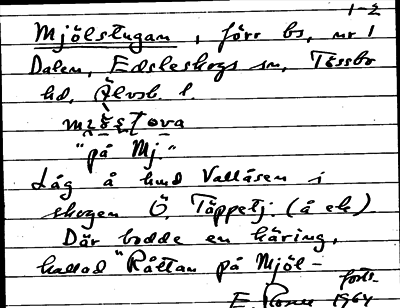 1-2
Mjölstugan, förr bs, nr 1
Dalen, Edsleskogs sn, Tössbo
hd, Älvsb. l.
"på Mj."
Låg å hmd Vallåsen i
skogen Ö. Täppetj. (å ek)
Där bodde en häring,
kallad "Råttan på Mjöl-
forts.
E. 1964